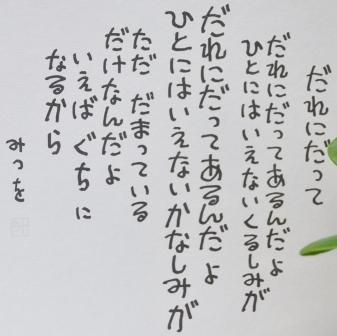 だれにだって
だれにだってあるんだよ
ひとにはいえないくるしみが
だれにだってあるんだよ
ひとにはいえないかなしみが
ただ だまっている
だけなんだよ
いえば ぐちに
なるから
みつを